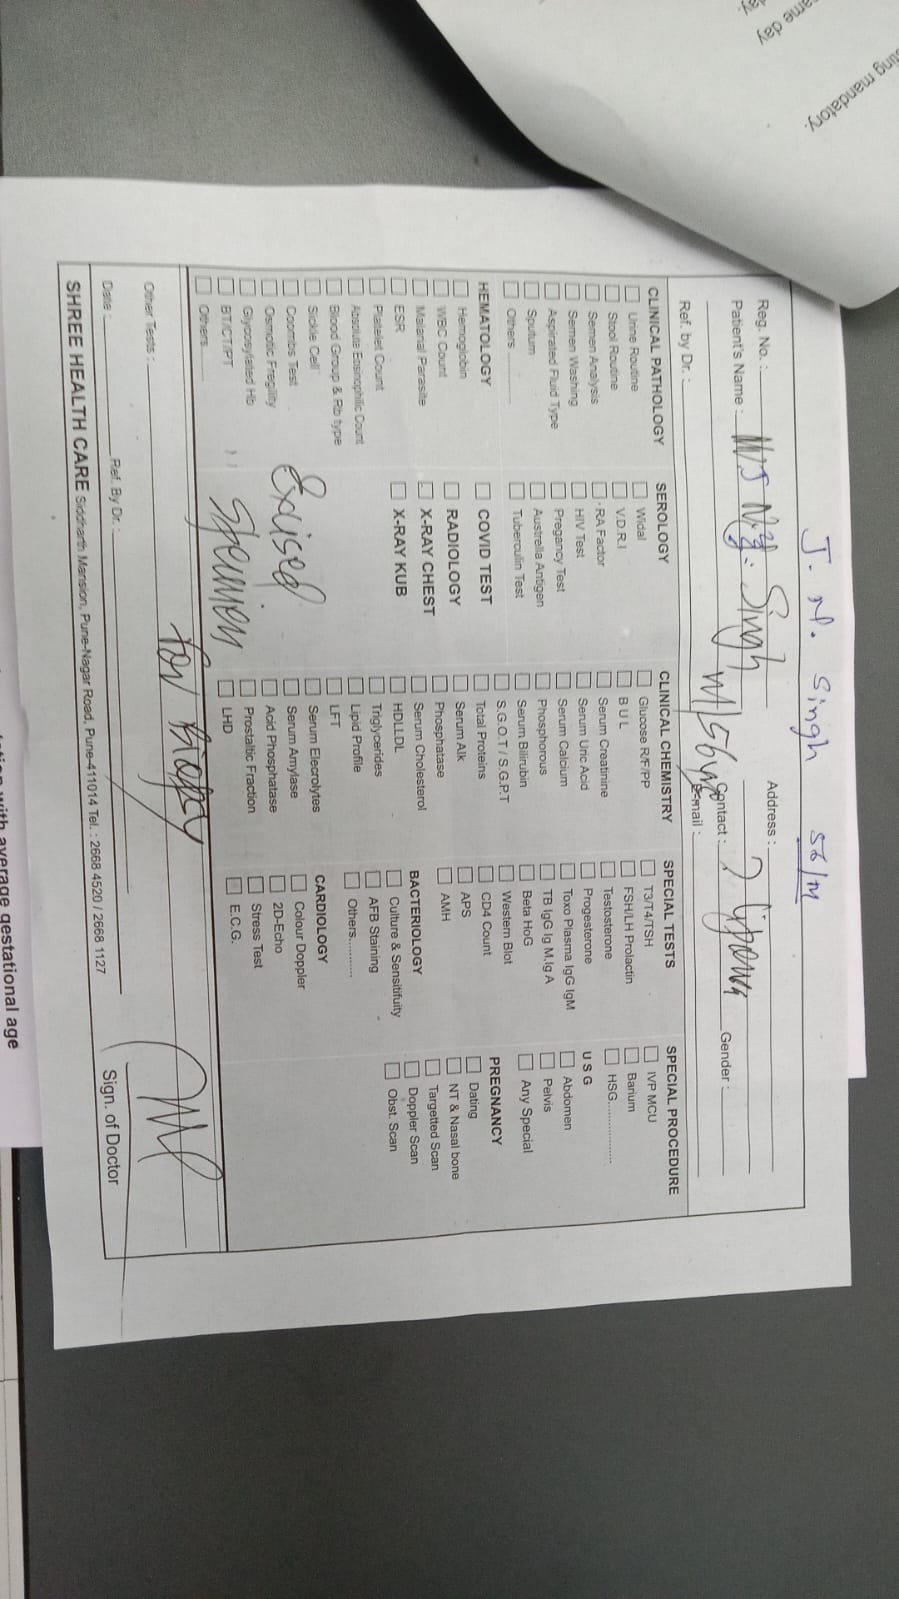 J. N. Singh 56/M
Reg. No. :
Address :
Patient's Name : Singh M/56yrs
Contact : ? Lipoma
Gender :
Ref. by Dr. :
E-mail :
CLINICAL PATHOLOGY
Urine Routine
Stool Routine
Semen Analysis
Semen Washing
Aspirated Fluid Type
Sputum
Others
HEMATOLOGY
Hemoglobin
WBC Count
Malarial Parasite
ESR
Platelet Count
Absolute Eosinophilic Count
Blood Group & Rb type
Sickle Cell
Coombs Test
Osmotic Fregility
Glycosylated Hb
BT/CT/PT
Others
SEROLOGY
Widal
V.D.R.I
RA Factor
HIV Test
Pregancy Test
Austrella Antigen
Tuberculin Test
COVID TEST
RADIOLOGY
X-RAY CHEST
X-RAY KUB
Excised
Specimen
for Biopsy
CLINICAL CHEMISTRY
Glucose R/F/PP
B U L
Serum Creatinine
Serum Uric Acid
Serum Calcium
Phosphorous
Serum Bilirubin
S.G.O.T / S.G.P.T
Total Proteins
Serum Alk
Phosphatase
Serum Cholesterol
HDLLDL
Triglycerides
Lipid Profile
LFT
Serum Elecrolytes
Serum Amylase
Acid Phosphatase
Prostaltic Fraction
LHD
SPECIAL TESTS
T3/T4/TSH
FSH/LH Prolactin
Testosterone
Progesterone
Toxo Plasma IgG IgM
TB IgG Ig M.Ig A
Beta HoG
Western Blot
CD4 Count
APS
AMH
BACTERIOLOGY
Culture & Sensitifuity
AFB Staining
Others...........
CARDIOLOGY
Colour Doppler
2D-Echo
Stress Test
E.C.G.
SPECIAL PROCEDURE
IVP MCU
Barium
HSG................
U S G
Abdomen
Pelvis
Any Special
PREGNANCY
Dating
NT & Nasal bone
Targetted Scan
Doppler Scan
Obst. Scan
Other Tests :
Date :
Ref. By Dr. :
Sign. of Doctor
SHREE HEALTH CARE Siddharth Mansion, Pune-Nagar Road, Pune-411014 Tel. : 2668 4520 / 2668 1127
ame day
ting mandatory.
with average gestational age